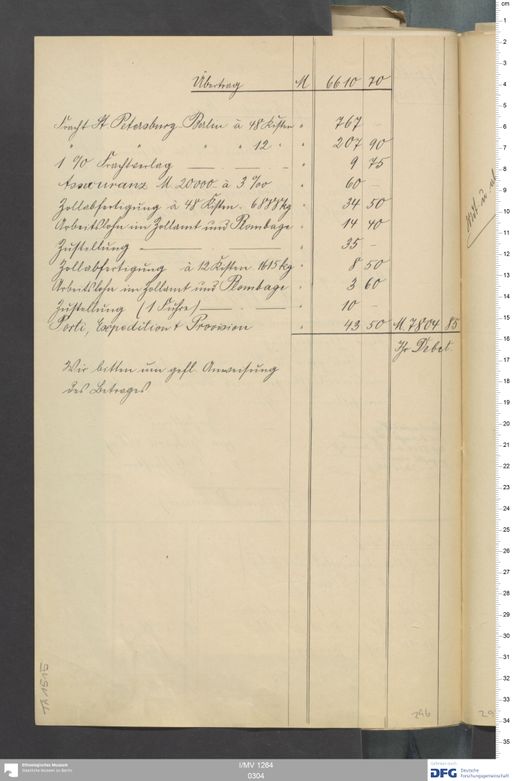 Übertrag M 6610 70
Fracht St. Petersburg-Berlin à 48 Kisten " 767 –
" " " " 12 " " 207 90
1% Frachtverlag " 9 75
Assecuranz M. 20000.- à 3 ‰ " 60 –
Zollabfertigung à 48 Kisten. 6888 kg " 34 50
Arbeitslohn im Zollamt und Plombage " 14 40
Zustellung " 35 –
Zollabfertigung à 12 Kisten 1615 kg " 8 50
Arbeitslohn im Zollamt und Plombage " 3 60
Zustellung (1 Fuhre) " 10 –
Porti, Expedition & Provision " 43 50 M. 7804 85
Ihr Debet.
Wir bitten um gefl. Anweisung
des Betrages
296
29
Ethnologisches Museum
Staatliche Museen zu Berlin
I/MV 1264
0304
DFG Deutsche
Forschungsgemeinschaft